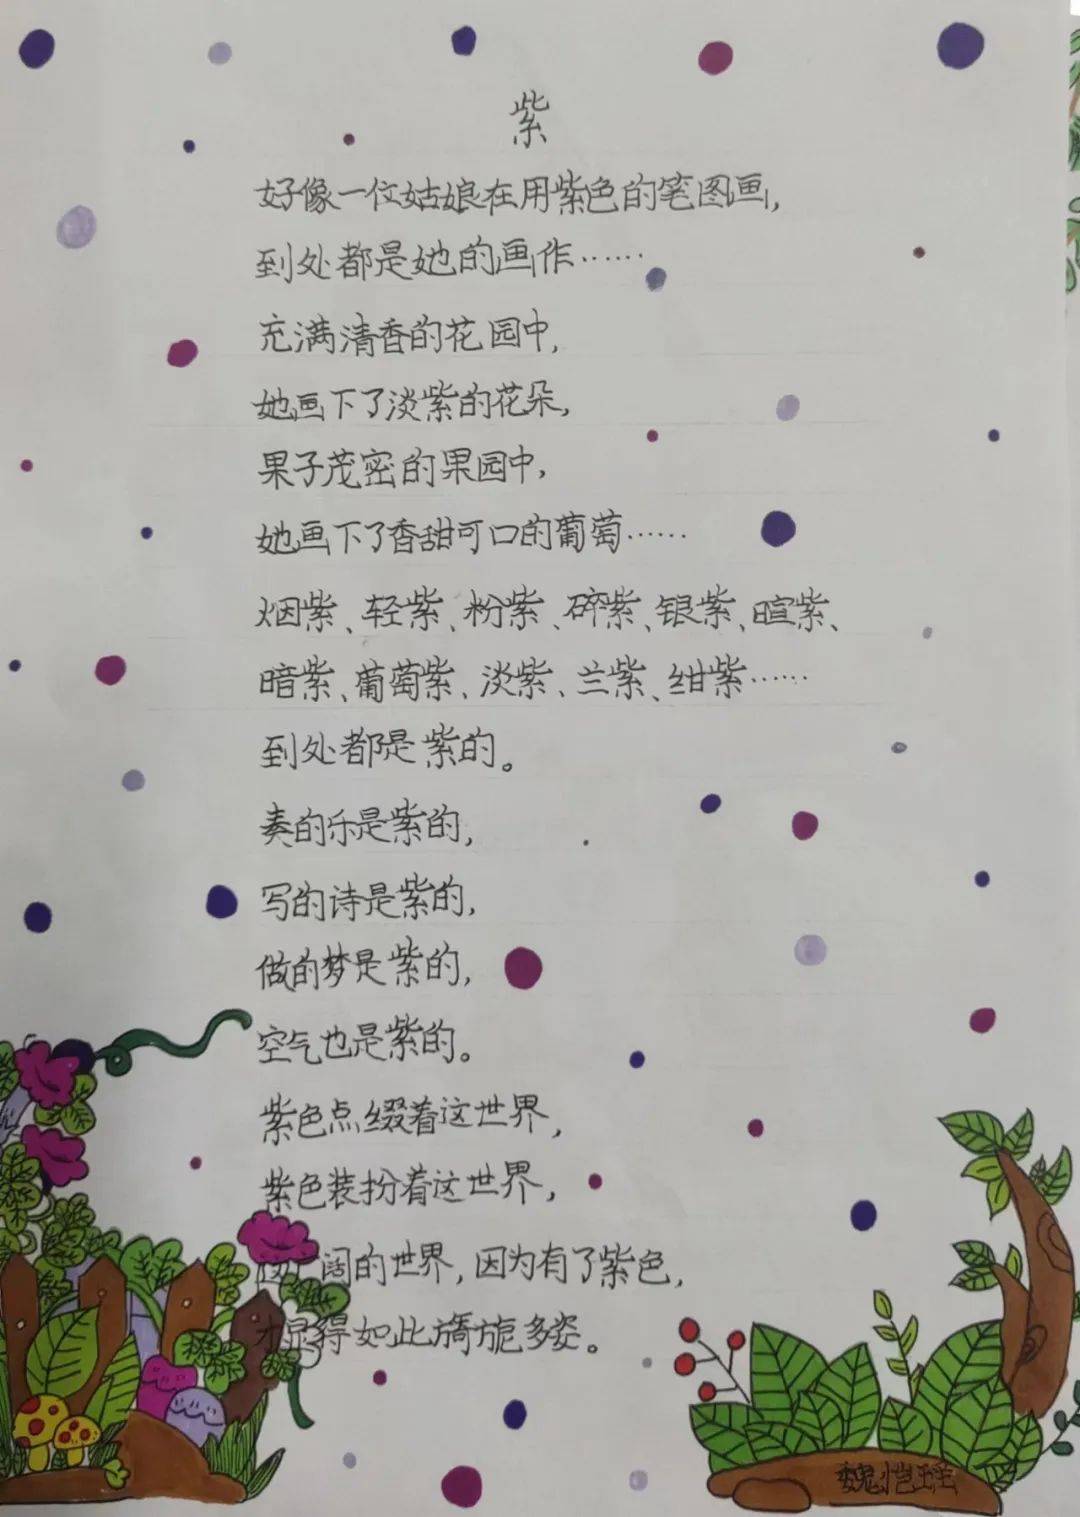 紫
好像一位姑娘在用紫色的笔图画,
到处都是她的画作……
充满清香的花园中,
她画下了淡紫的花朵,
果子茂密的果园中,
她画下了香甜可口的葡萄……
烟紫、轻紫、粉紫、碎紫、银紫、暄紫、
暗紫、葡萄紫、淡紫、兰紫、绀紫……
到处都是紫的。
奏的乐是紫的,
写的诗是紫的,
做的梦是紫的,
空气也是紫的。
紫色点缀着这世界,
紫色装扮着这世界,
阔的世界,因为有了紫色,
才显得如此旖旎多姿。
魏恺瑶